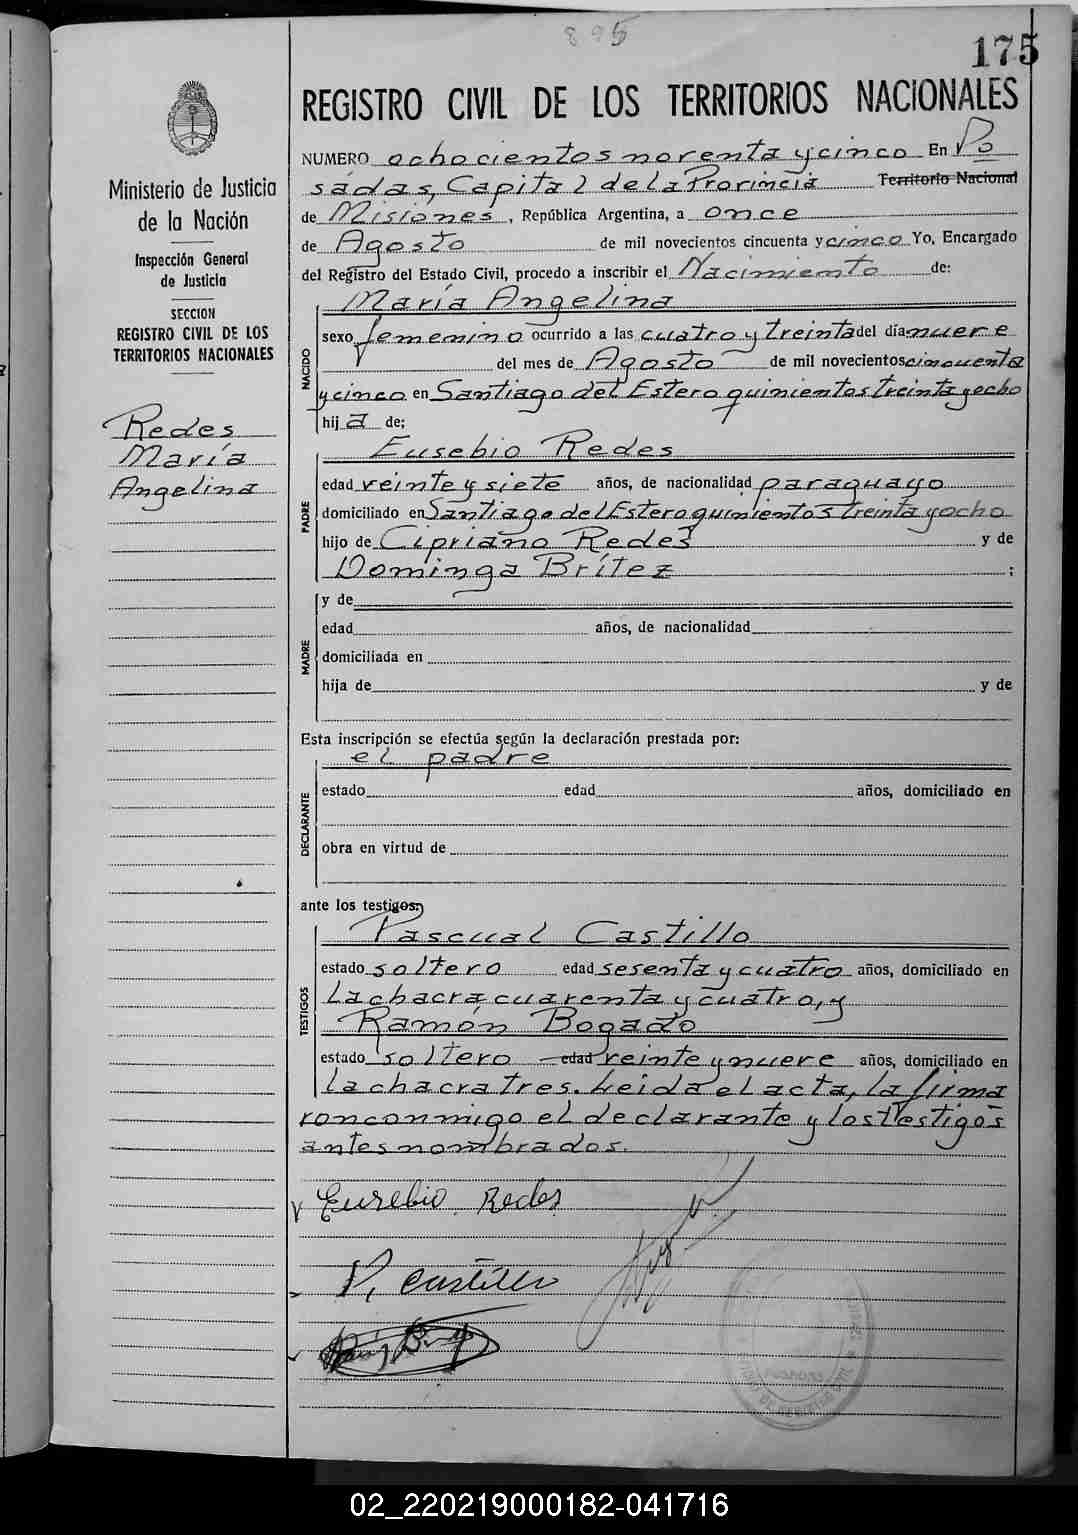 895
175
REGISTRO CIVIL DE LOS TERRITORIOS NACIONALES
Ministerio de Justicia
de la Nación
Inspección General
de Justicia
SECCION
REGISTRO CIVIL DE LOS
TERRITORIOS NACIONALES
Redes
María
Angelina
NUMERO ochocientos noventa y cinco En Po
sadas, Capital de la Provincia Territorio Nacional
de Misiones, República Argentina, a once
de Agosto de mil novecientos cincuenta y cinco Yo, Encargado
del Registro del Estado Civil, procedo a inscribir el Nacimiento de:
NACIDO
María Angelina
sexo femenino ocurrido a las cuatro y treinta del día nueve
del mes de Agosto de mil novecientos cincuenta
y cinco en Santiago del Estero quinientos treinta y ocho
hij a de:
PADRE
Eusebio Redes
edad veinte y siete años, de nacionalidad paraguayo
domiciliado en Santiago del Estero quinientos treinta y ocho
hijo de Cipriano Redes y de
Dominga Brítez ;
MADRE
y de
edad años, de nacionalidad
domiciliada en
hija de y de
Esta inscripción se efectúa según la declaración prestada por:
DECLARANTE
el padre
estado edad años, domiciliado en
obra en virtud de
ante los testigos:
TESTIGOS
Pascual Castillo
estado soltero edad sesenta y cuatro años, domiciliado en
la chacra cuarenta y cuatro, y
Ramón Bogado
estado soltero edad veinte y nueve años, domiciliado en
la chacra tres. Leída el acta, la firma
ron conmigo el declarante y los testigos
antes nombrados.
Eusebio Redes
P. Castillo
02_220219000182-041716